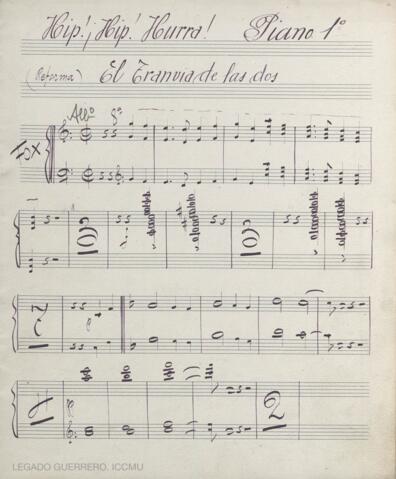 Hip! ¡Hip! Hurra! Piano 1º
(Reforma) El Tranvia de las dos
All.º 8ª
Fox
LEGADO GUERRERO. ICCMU